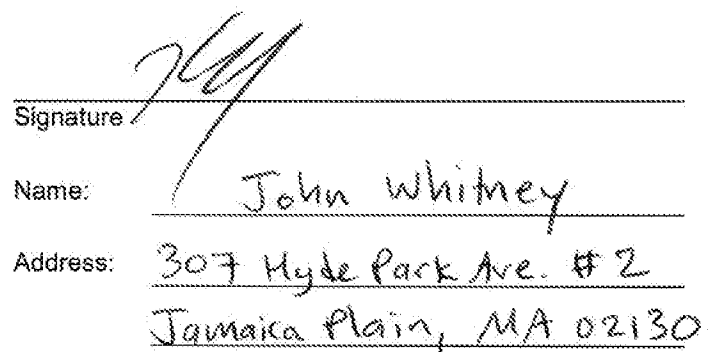 Signature
Name: John Whitney
Address: 307 Hyde Park Ave. #2
Jamaica Plain, MA 02130